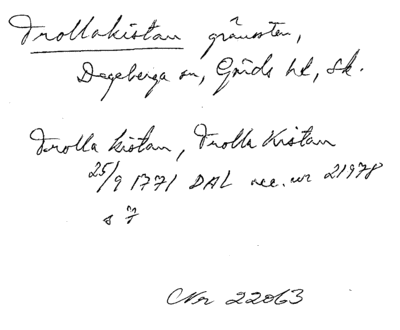 Trollakistan gränssten,
Degeberga sn, Gärds hd, Sk.
Trolla kistan, Trolla Kistan
25/9 1771 DAL acc. nr 21978
s 7
Nr 22063